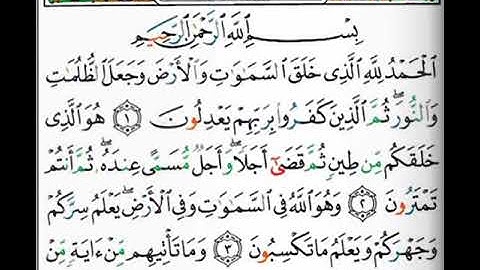 بِسْمِ ٱللَّهِ ٱلرَّحْمَٰنِ ٱلرَّحِيمِ
ٱلْحَمْدُ لِلَّهِ ٱلَّذِى خَلَقَ ٱلسَّمَٰوَٰتِ وَٱلْأَرْضَ وَجَعَلَ ٱلظُّلُمَٰتِ
وَٱلنُّورَ ۖ ثُمَّ ٱلَّذِينَ كَفَرُوا۟ بِرَبِّهِمْ يَعْدِلُونَ ١ هُوَ ٱلَّذِى
خَلَقَكُم مِّن طِينٍ ثُمَّ قَضَىٰٓ أَجَلًا ۖ وَأَجَلٌ مُّسَمًّى عِندَهُۥ ۖ ثُمَّ أَنتُمْ
تَمْتَرُونَ ٢ وَهُوَ ٱللَّهُ فِى ٱلسَّمَٰوَٰتِ وَفِى ٱلْأَرْضِ ۖ يَعْلَمُ سِرَّكُمْ
وَجَهْرَكُمْ وَيَعْلَمُ مَا تَكْسِبُونَ ٣ وَمَا تَأْتِيهِم مِّنْ ءَايَةٍ مِّنْ